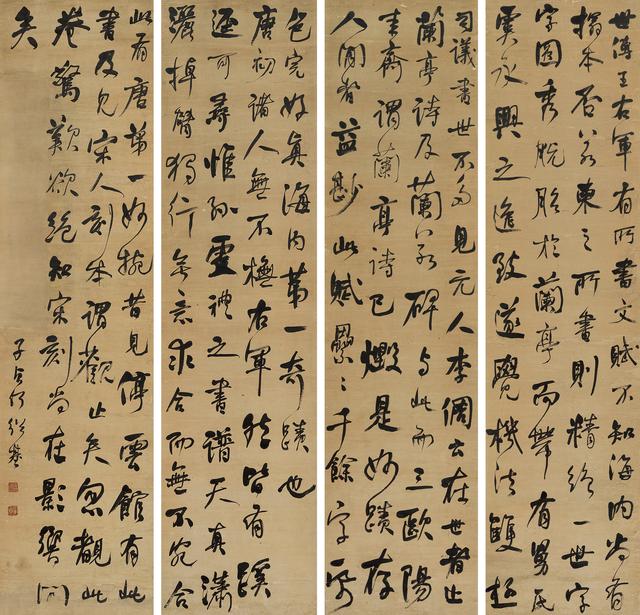 世傳王右軍有所書文賦不知海內尚有
搨本否若東之所書則精絕一世字
字圓秀脫胎於蘭亭而帶有舅氏
虞永興之遒致遂覺機法雙超
司議書世不多見元人李倜云在世者止
蘭亭詩及蘭若碑與此而三歐陽
圭齋謂蘭亭詩已燬是妙蹟存
人間者益尠此賦纍〻千餘字
完好真海內第一奇蹟也
唐初諸人無不橅右軍然皆有蹊
逕可尋惟孫虔禮之書譜天真瀟
灑掉臂獨行無意求合而無不宛合
此有唐第一妙捥昔見停雲館有此
書及見宋人刻本謂觀止矣忽觀此
卷驚歎欲絕知宋刻尚在影響間
矣
子貞何紹基